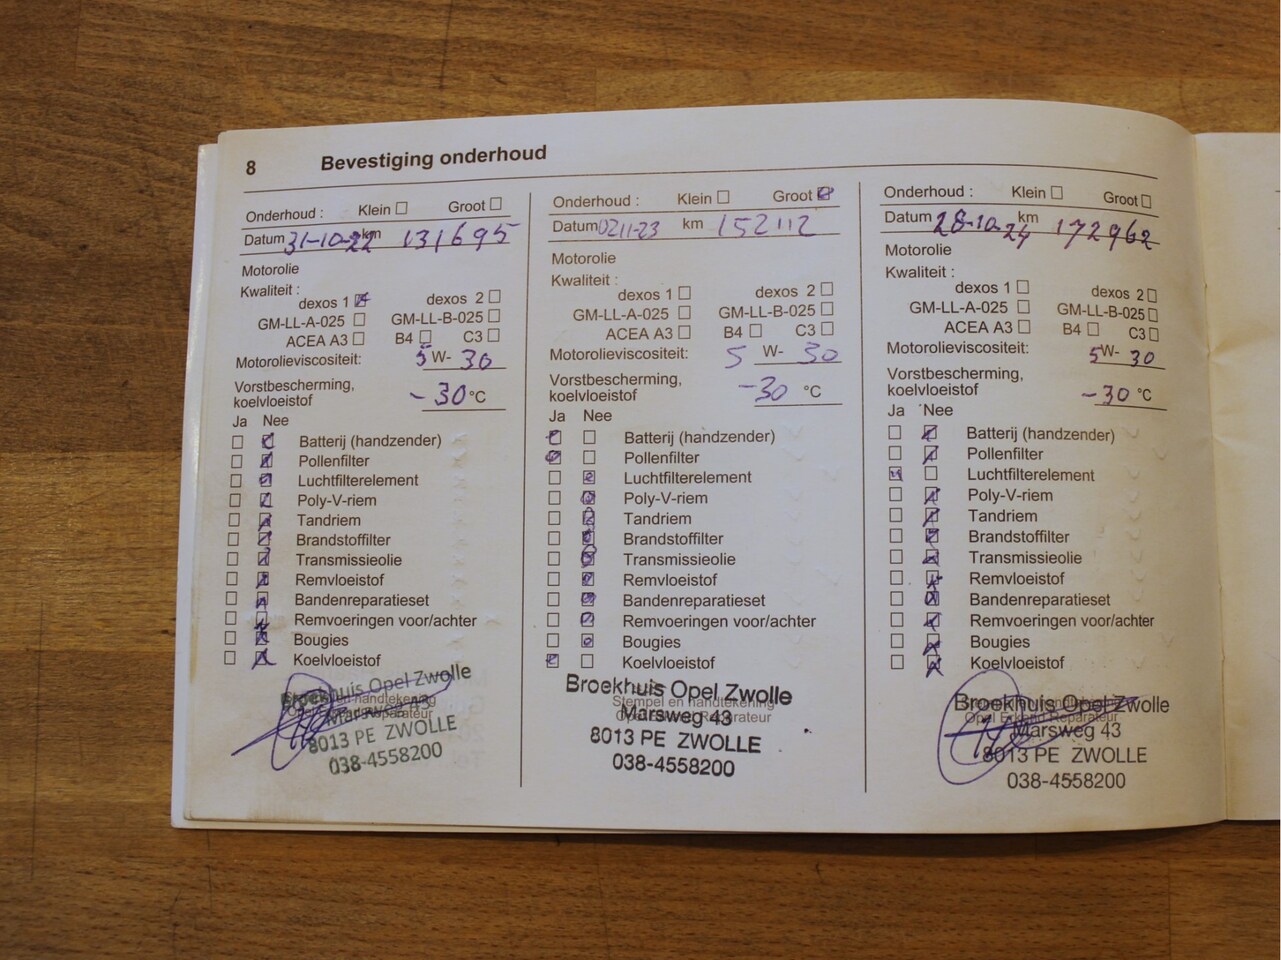 8 Bevestiging onderhoud
Onderhoud : Klein Groot
Datum 31-10-22 km 131695
Motorolie
Kwaliteit :
dexos 1 dexos 2
GM-LL-A-025 GM-LL-B-025
ACEA A3 B4 C3
Motorolieviscositeit: 5 W- 30
Vorstbescherming,
koelvloeistof -30 °C
Ja Nee
Batterij (handzender)
Pollenfilter
Luchtfilterelement
Poly-V-riem
Tandriem
Brandstoffilter
Transmissieolie
Remvloeistof
Bandenreparatieset
Remvoeringen voor/achter
Bougies
Koelvloeistof
Broekhuis Opel Zwolle
Stempel en handtekening
Opel Erkend Reparateur
Marsweg 43
8013 PE ZWOLLE
038-4558200
Onderhoud : Klein Groot
Datum 0211-23 km 152112
Motorolie
Kwaliteit :
dexos 1 dexos 2
GM-LL-A-025 GM-LL-B-025
ACEA A3 B4 C3
Motorolieviscositeit: 5 W- 30
Vorstbescherming,
koelvloeistof -30 °C
Ja Nee
Batterij (handzender)
Pollenfilter
Luchtfilterelement
Poly-V-riem
Tandriem
Brandstoffilter
Transmissieolie
Remvloeistof
Bandenreparatieset
Remvoeringen voor/achter
Bougies
Koelvloeistof
Broekhuis Opel Zwolle
Stempel en handtekening
Marsweg 43
Opel Erkend Reparateur
8013 PE ZWOLLE
038-4558200
Onderhoud : Klein Groot
Datum 28-10-24 km 172962
Motorolie
Kwaliteit :
dexos 1 dexos 2
GM-LL-A-025 GM-LL-B-025
ACEA A3 B4 C3
Motorolieviscositeit: 5 W- 30
Vorstbescherming,
koelvloeistof -30 °C
Ja Nee
Batterij (handzender)
Pollenfilter
Luchtfilterelement
Poly-V-riem
Tandriem
Brandstoffilter
Transmissieolie
Remvloeistof
Bandenreparatieset
Remvoeringen voor/achter
Bougies
Koelvloeistof
Broekhuis Opel Zwolle
Stempel en handtekening
Opel Erkend Reparateur
Marsweg 43
8013 PE ZWOLLE
038-4558200